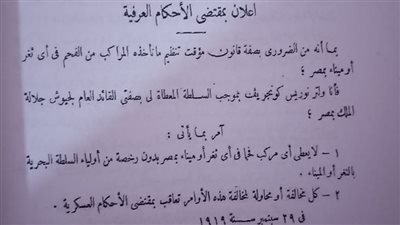 اعلان بمقتضى الأحكام العرفية
بما أنه من الضرورى بصفة قانون مؤقت تنظيم ما تأخذه المراكب من الفحم فى أى ثغر
أو ميناء بمصر ؛
فأنا ولتر نوريس كونجريڤ بموجب السلطة المعطاة لى بصفتى القائد العام لجيوش جلالة
الملك بمصر ؛
آمر بما يأتى :
١ – لا يعطى أى مركب فحما فى أى ثغر أو ميناء بمصر بدون رخصة من أولياء السلطة البحرية
بالثغر أو الميناء .
٢ – كل مخالفة أو محاولة لمخالفة هذه الأوامر تعاقب بمقتضى الأحكام العسكرية .
فى ٢٩ سبتمبر سنة ١٩١٩